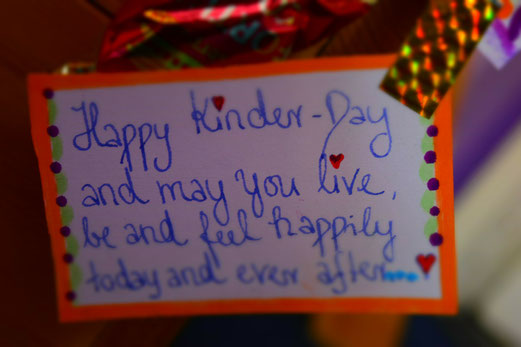 Happy Kinder-Day
and may you live,
be and feel happily
today and ever after...